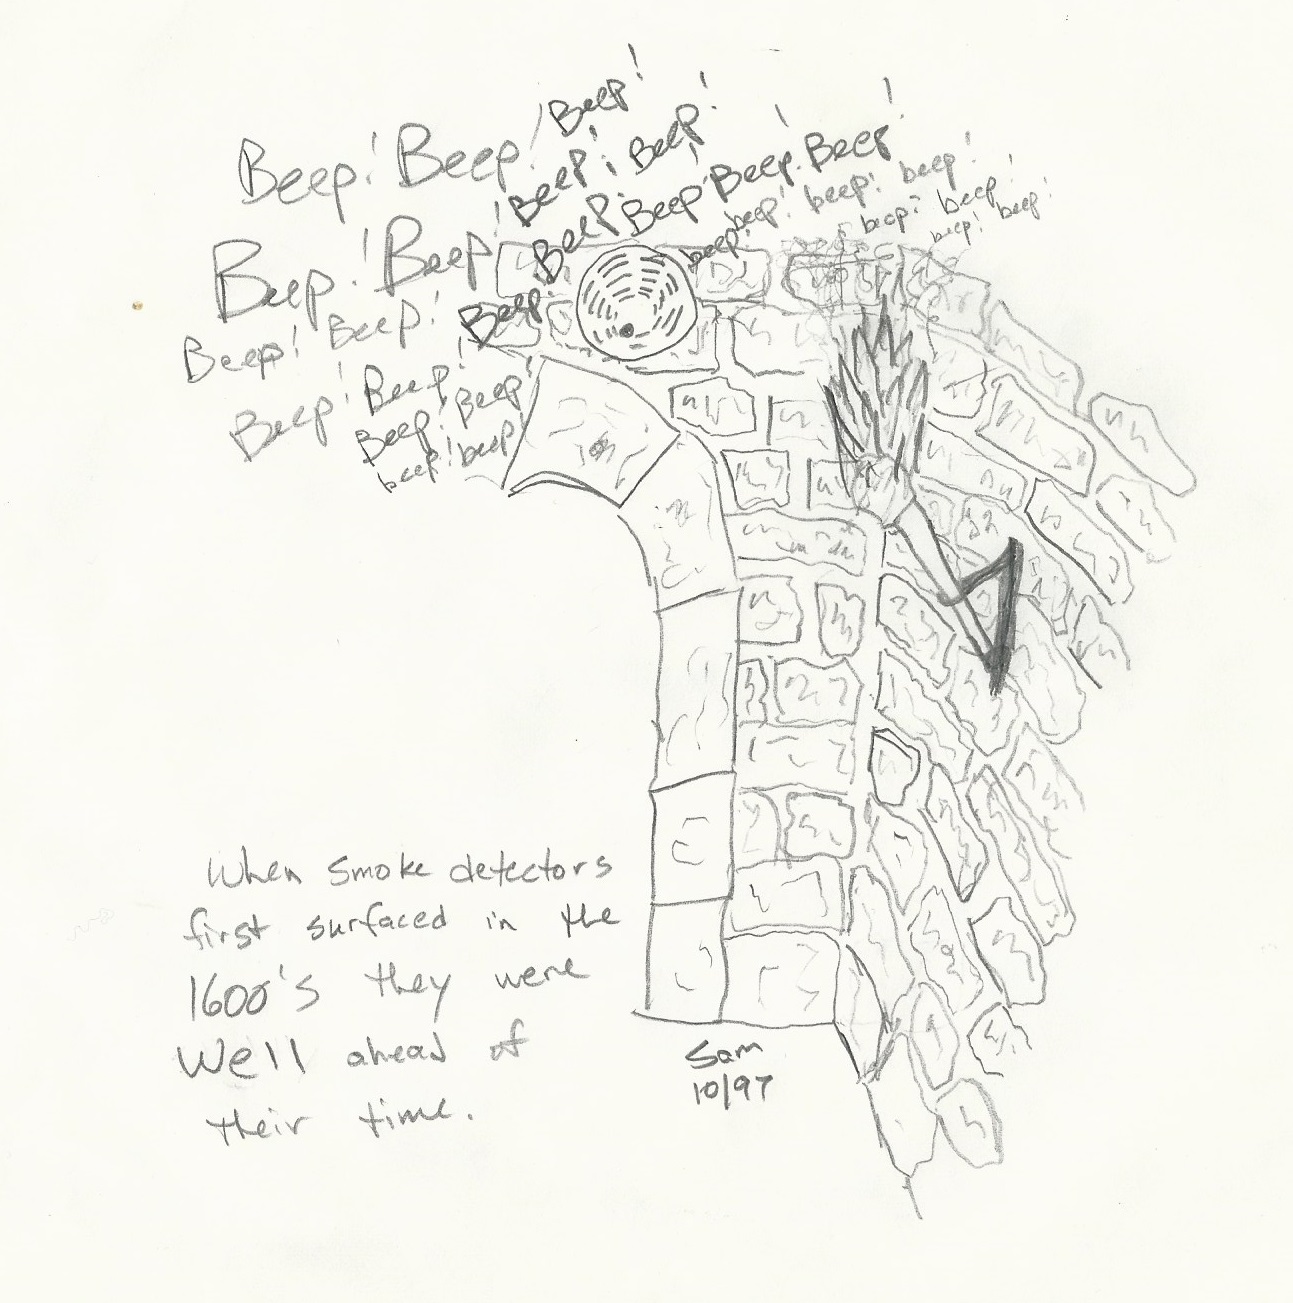 Beep! Beep! Beep!
Beep! Beep!
Beep! Beep! Beep! Beep! Beep!
beep! beep! beep! beep!
beep! beep! beep! beep!
Beep! Beep!
Beep! Beep! Beep!
Beep! Beep!
Beep! Beep!
beep! beep!
When smoke detectors
first surfaced in the
1600's they were
well ahead of
their time.
Sam
10/97